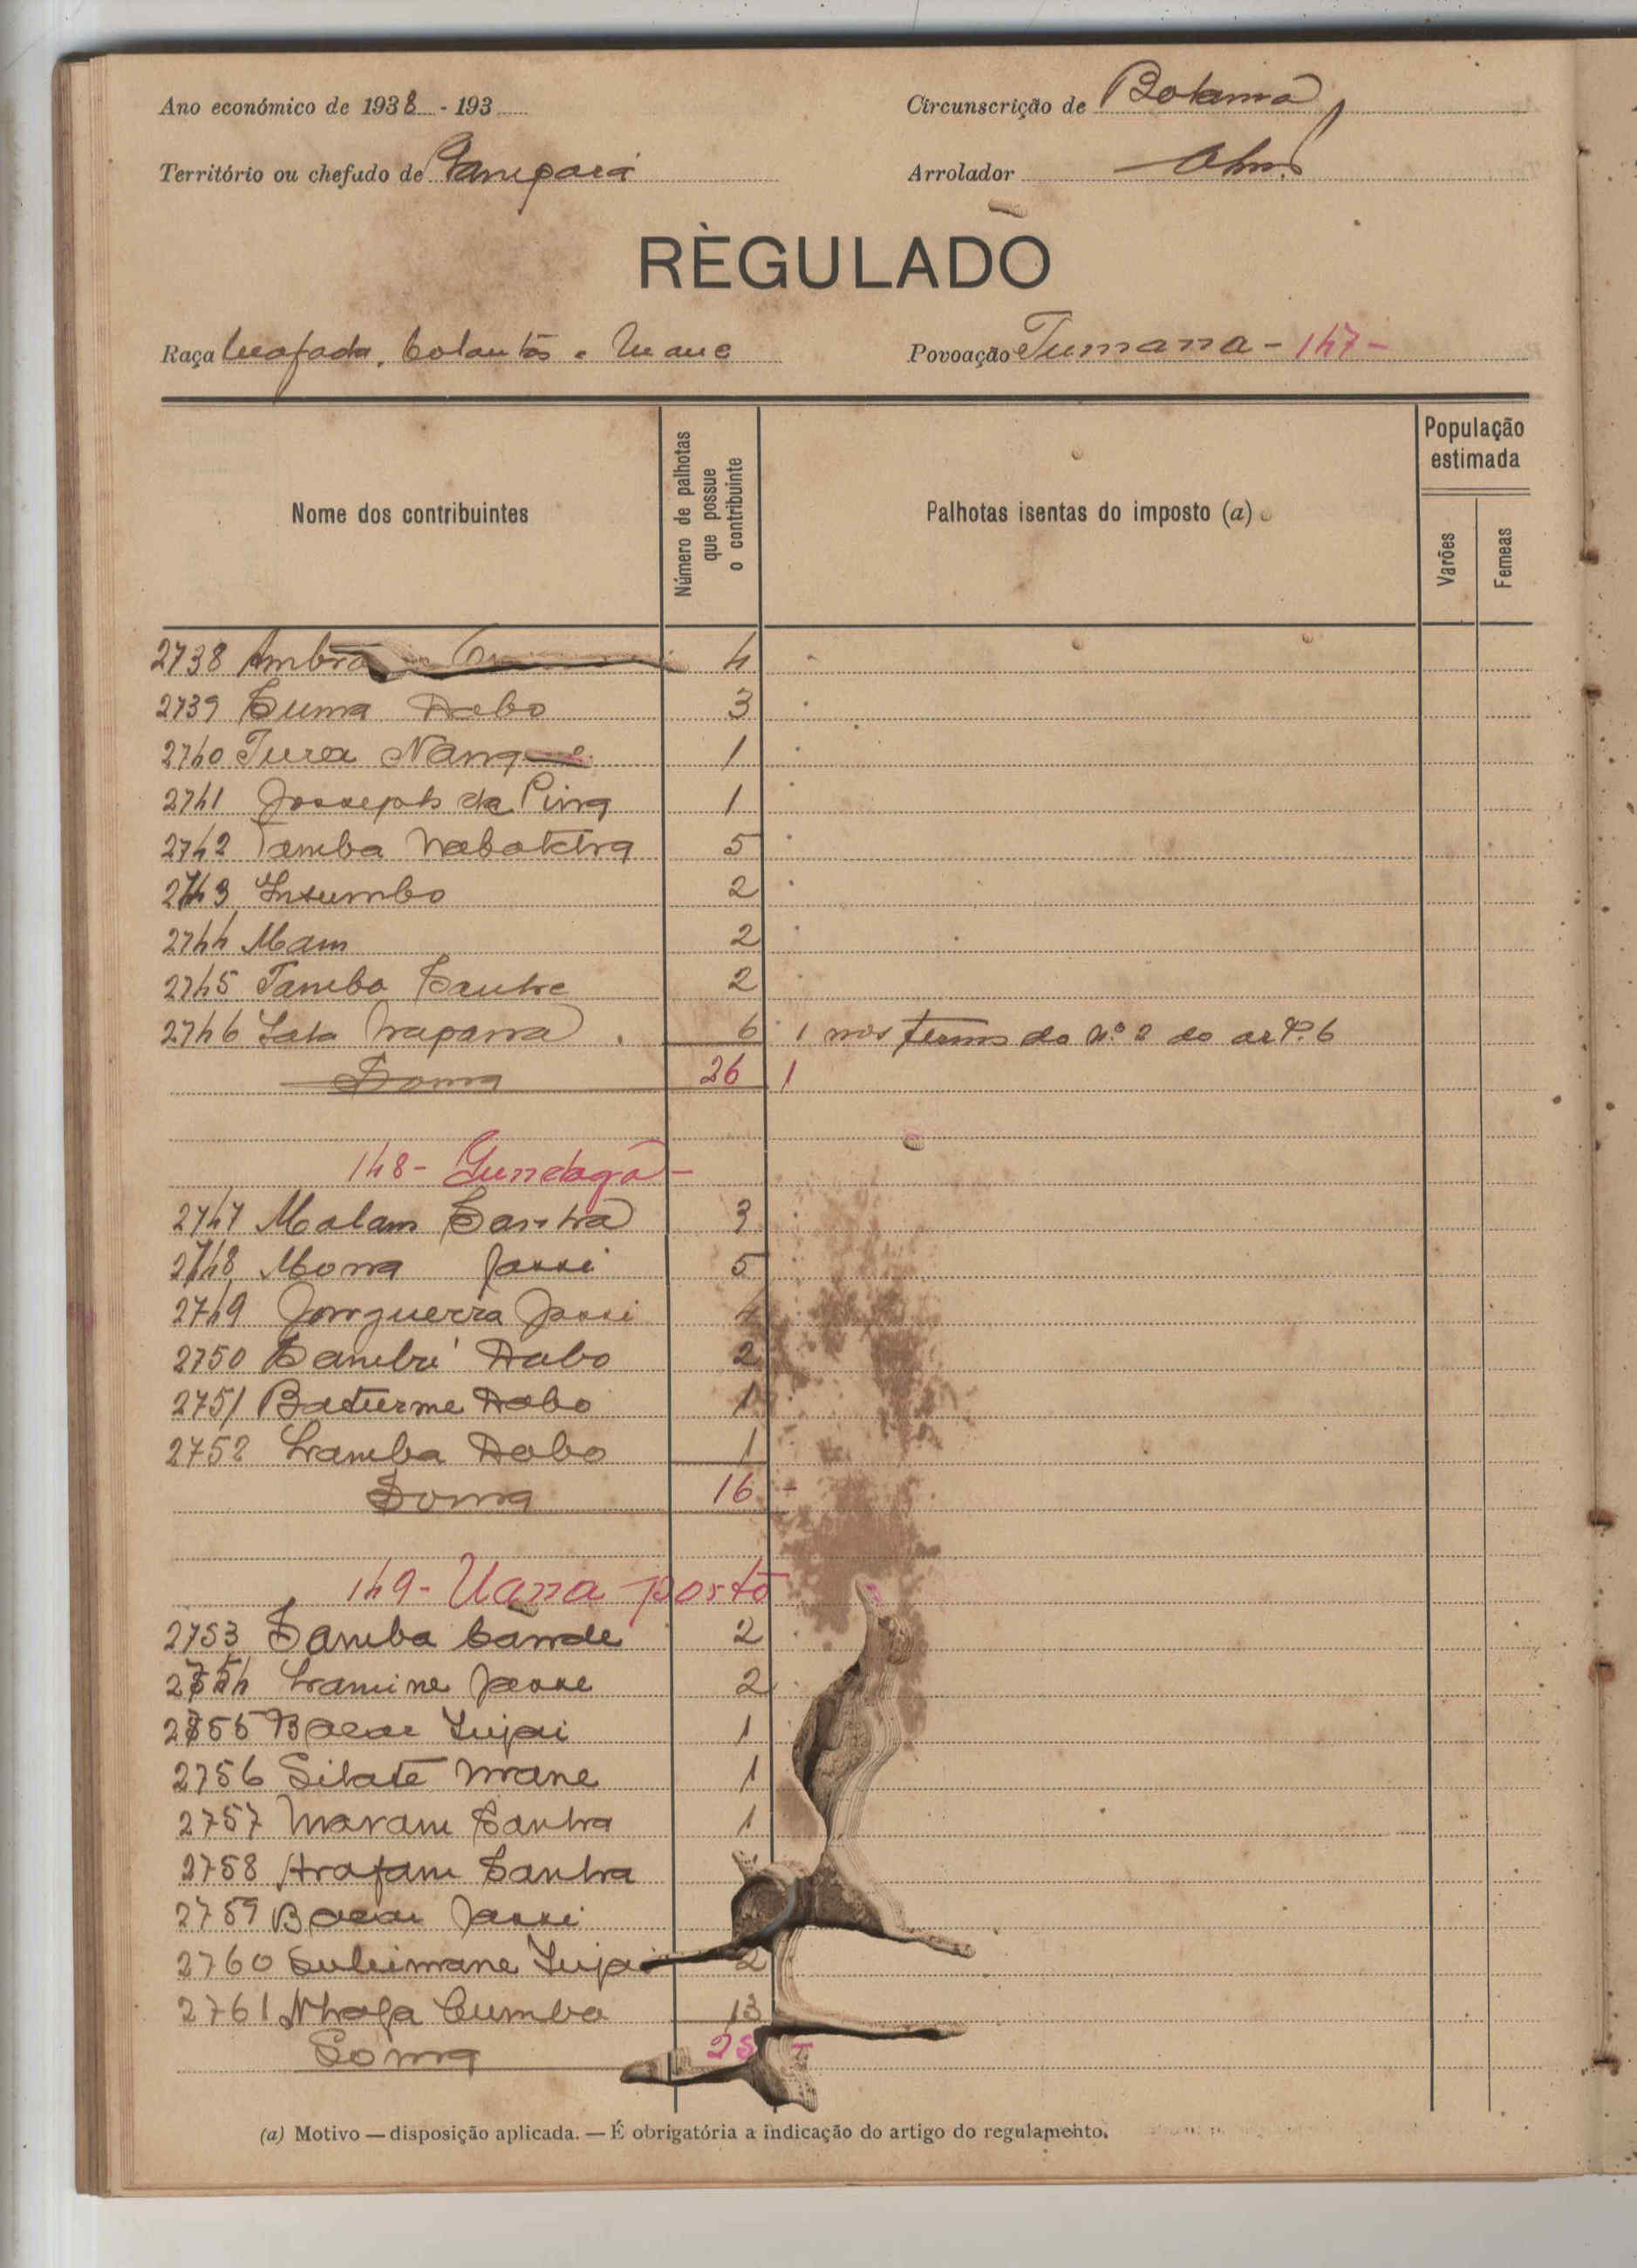 Ano económico de 1938 - 193
Circunscrição de Bolama
Território ou chefado de
Arrolador
RÈGULADO
Raça Beafada, Balantas e Mane
Povoação Tumana - 147 -
Nome dos contribuintes
Número de palhotas que possue o contribuinte
Palhotas isentas do imposto (a)
População estimada
Varões
Femeas
2738 4
2739 Suma Dabo 3
2740 Tura Nanque 1
2741 Josseph da Pina 1
2742 Tamba 5
2743 Insumbo 2
2744 Mam 2
2745 Tamba Sanhe 2
2746 6 1 nos termos do nº 2 do artº. 6
Soma 26 1
148 - Gundagà -
2747 Malam Sanha 3
2748 Mona Jassi 5
2749 Jonguerra Jassi 4
2750 Sambú Dabo 2
2751 Baturme Dabo 1
2752 Lamba Dabo 1
Soma 16 -
149 - Uana porto
2753 Samba Cande 2
2754 Lamine Jasse 2
2755 Bacar Injai 1
2756 Silate Mane 1
2757 Maram Sanha 1
2758 Arafam Sanha
2759 Bacar Jassi
2760 Suleimane Injai 2
2761 Nhafa Cumba 13
Soma
(a) Motivo — disposição aplicada. — É obrigatória a indicação do artigo do regulamento.